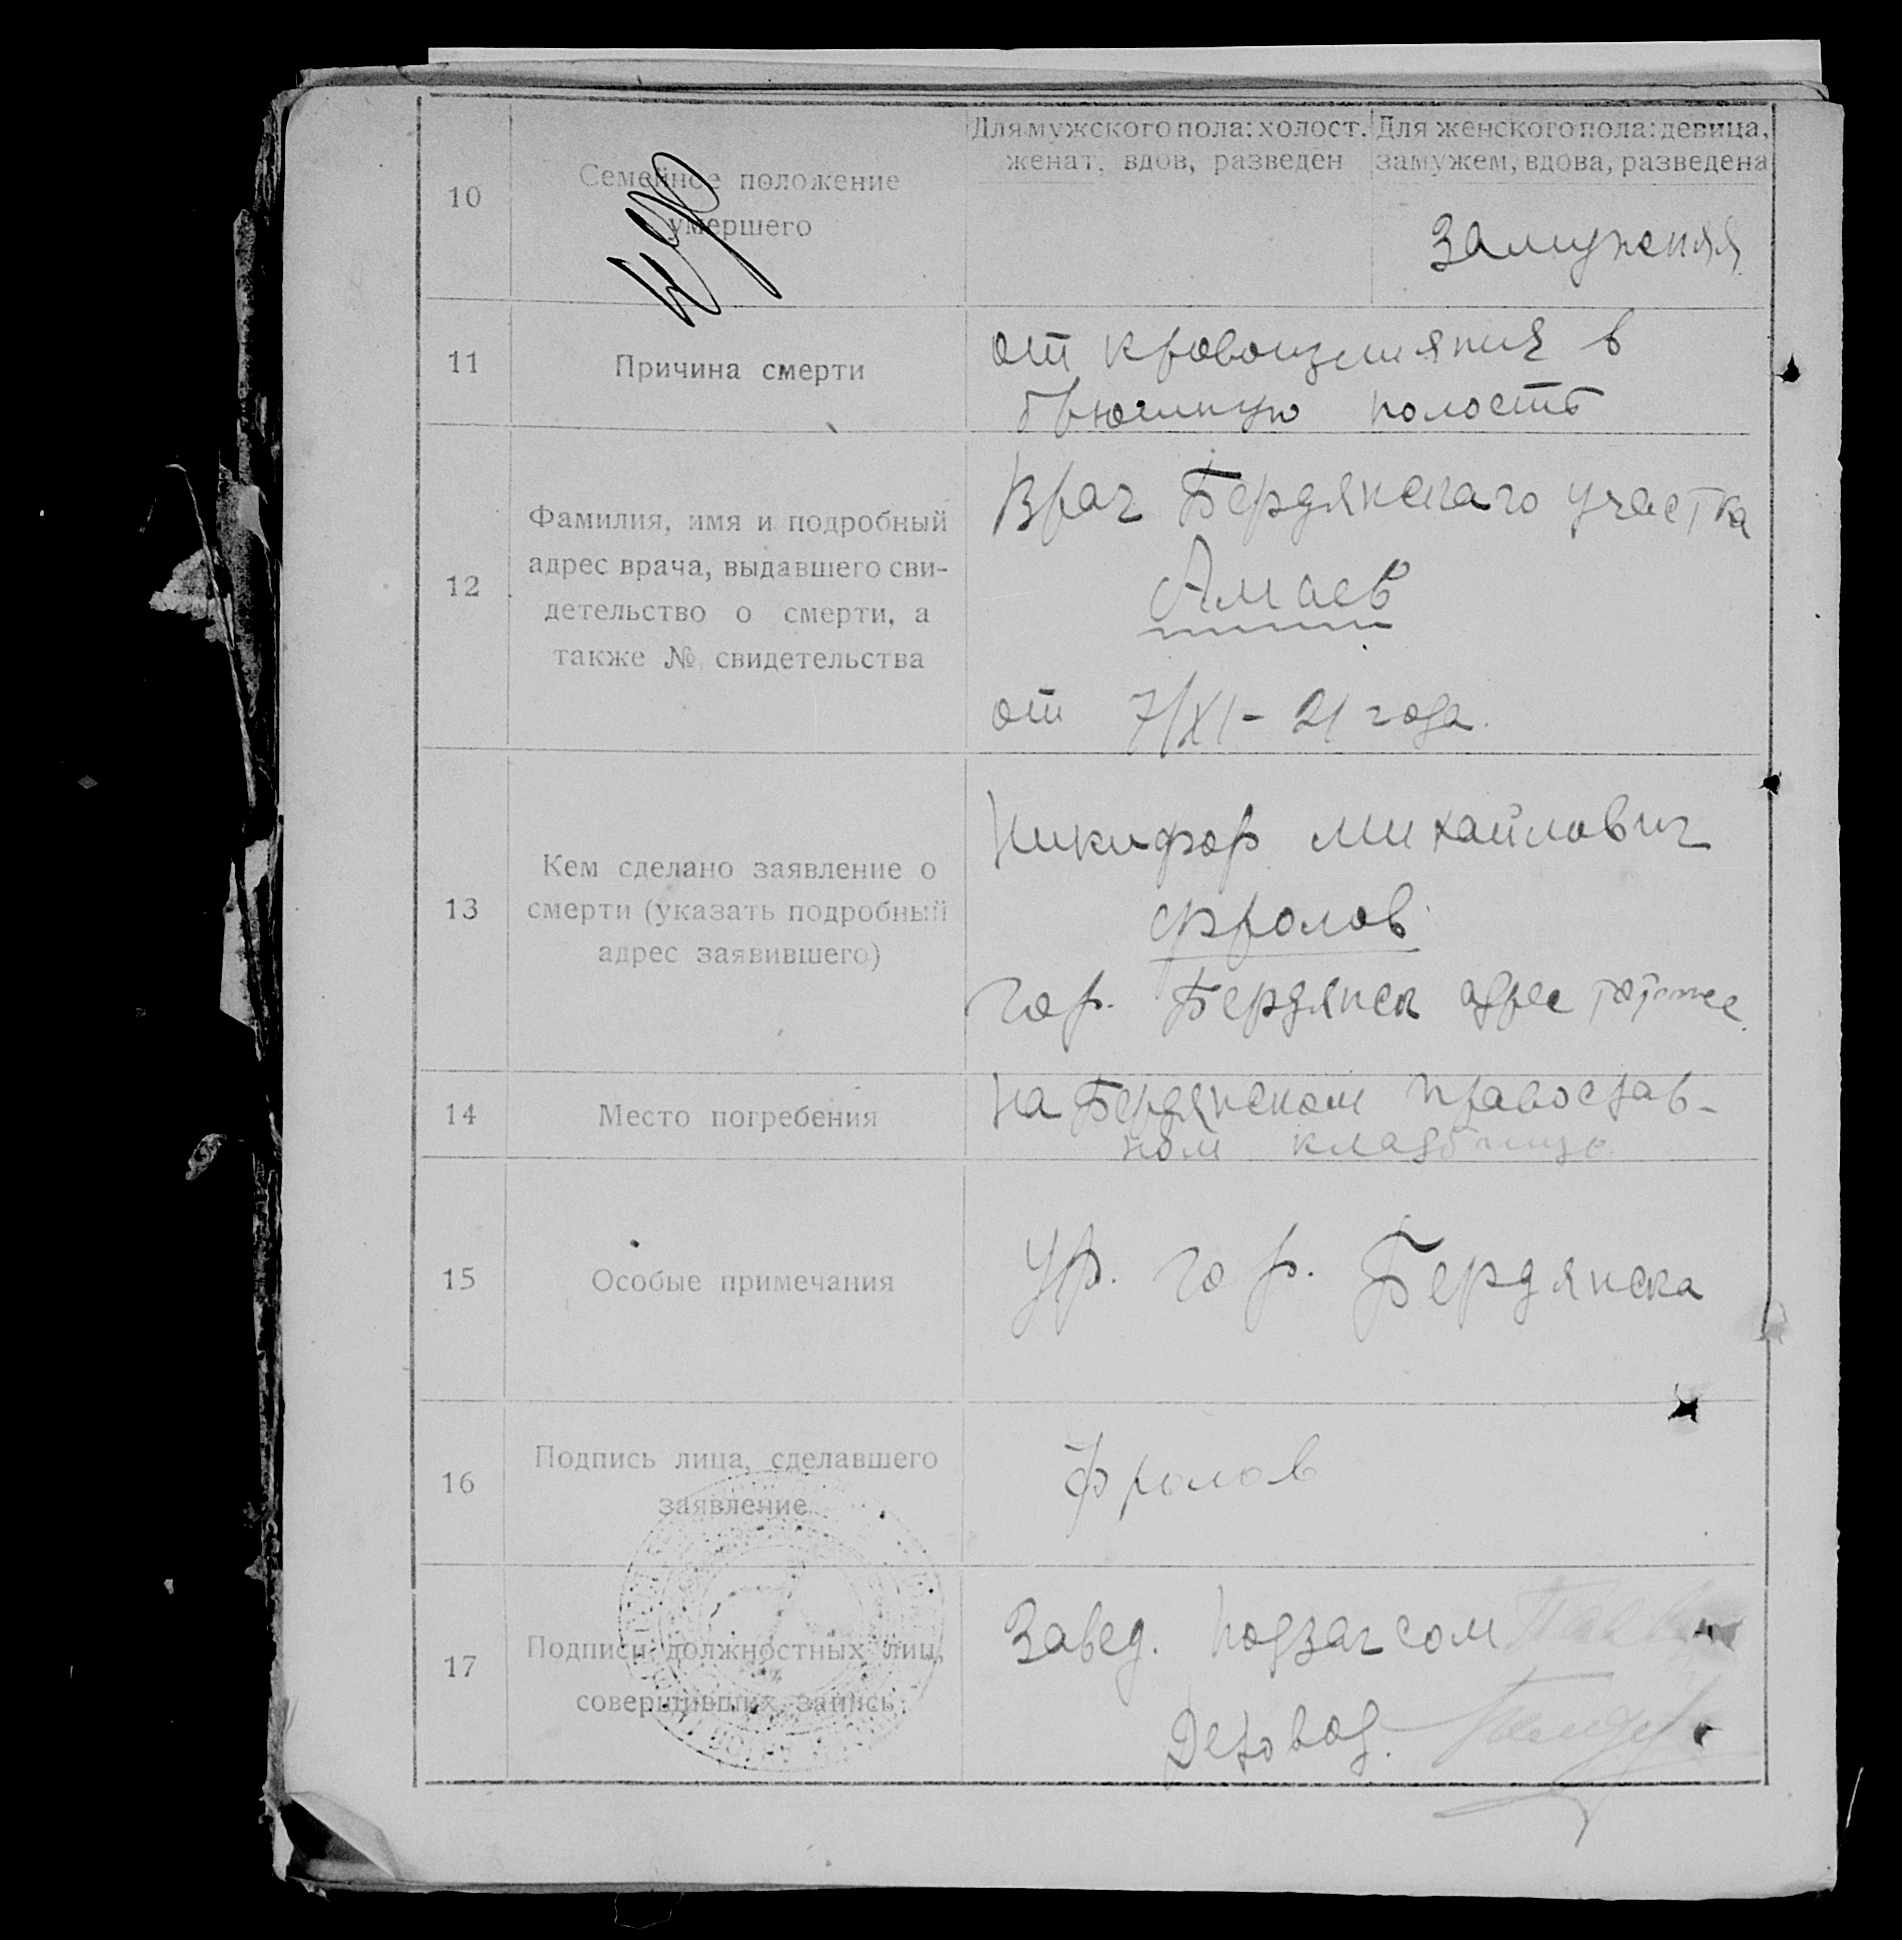 Для мужского пола: холост. женат, вдов, разведен
Для женского пола: девица, замужем, вдова, разведена
10
Семейное положение
умершего
Замужняя
11
Причина смерти
от кровоизлияния в
брюшную полость
12
Фамилия, имя и подробный
адрес врача, выдавшего сви-
детельство о смерти, а
также № свидетельства
Врач Бердянскаго участка
Амаев
от 7/XI - 21 года.
13
Кем сделано заявление о
смерти (указать подробный
адрес заявившего)
Никифор Михайлович
Фролов
Гор. Бердянск адрес тотже
14
Место погребения
на Бердянском православ-
ном кладбище
15
Особые примечания
Ур. гор. Бердянска
16
Подпись лица, сделавшего
заявление
Фролов
17
Подписи должностных лиц,
совершивших запись
Завед. Подзагсом
Деловод.